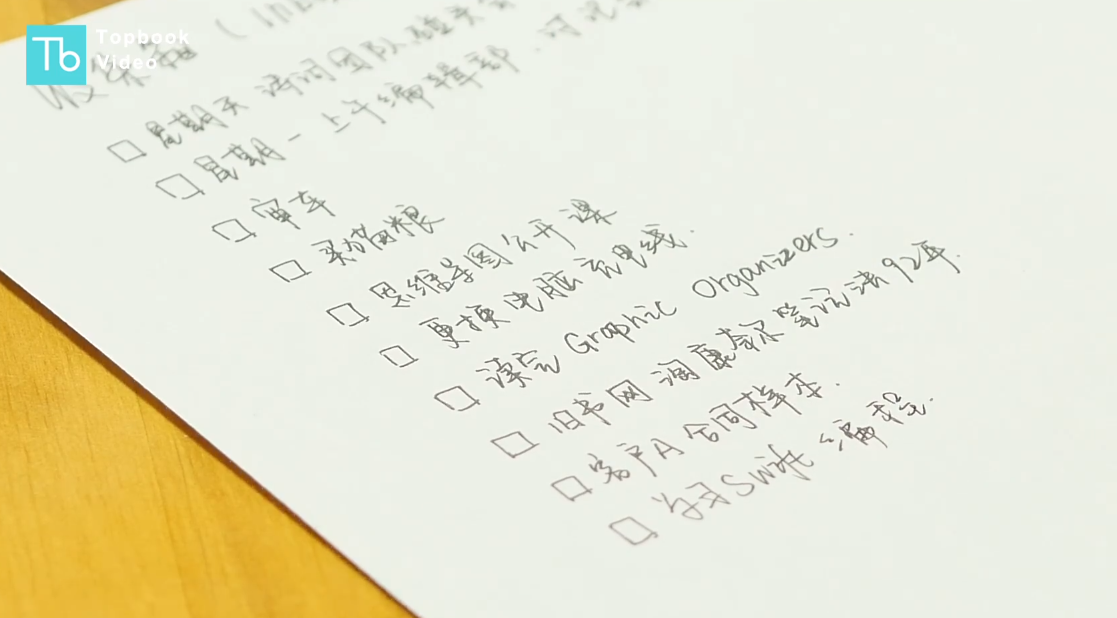 Tb Topbook
Video
收集箱（INB
星期天 诗词团队碰头
星期一上午编辑部
审车
买猫粮
思维导图公开课
更换电脑充电线.
读完 Graphic Organizers.
旧书网 淘康奈尔笔记法92年.
客户A合同样本.
学习Swift编程.